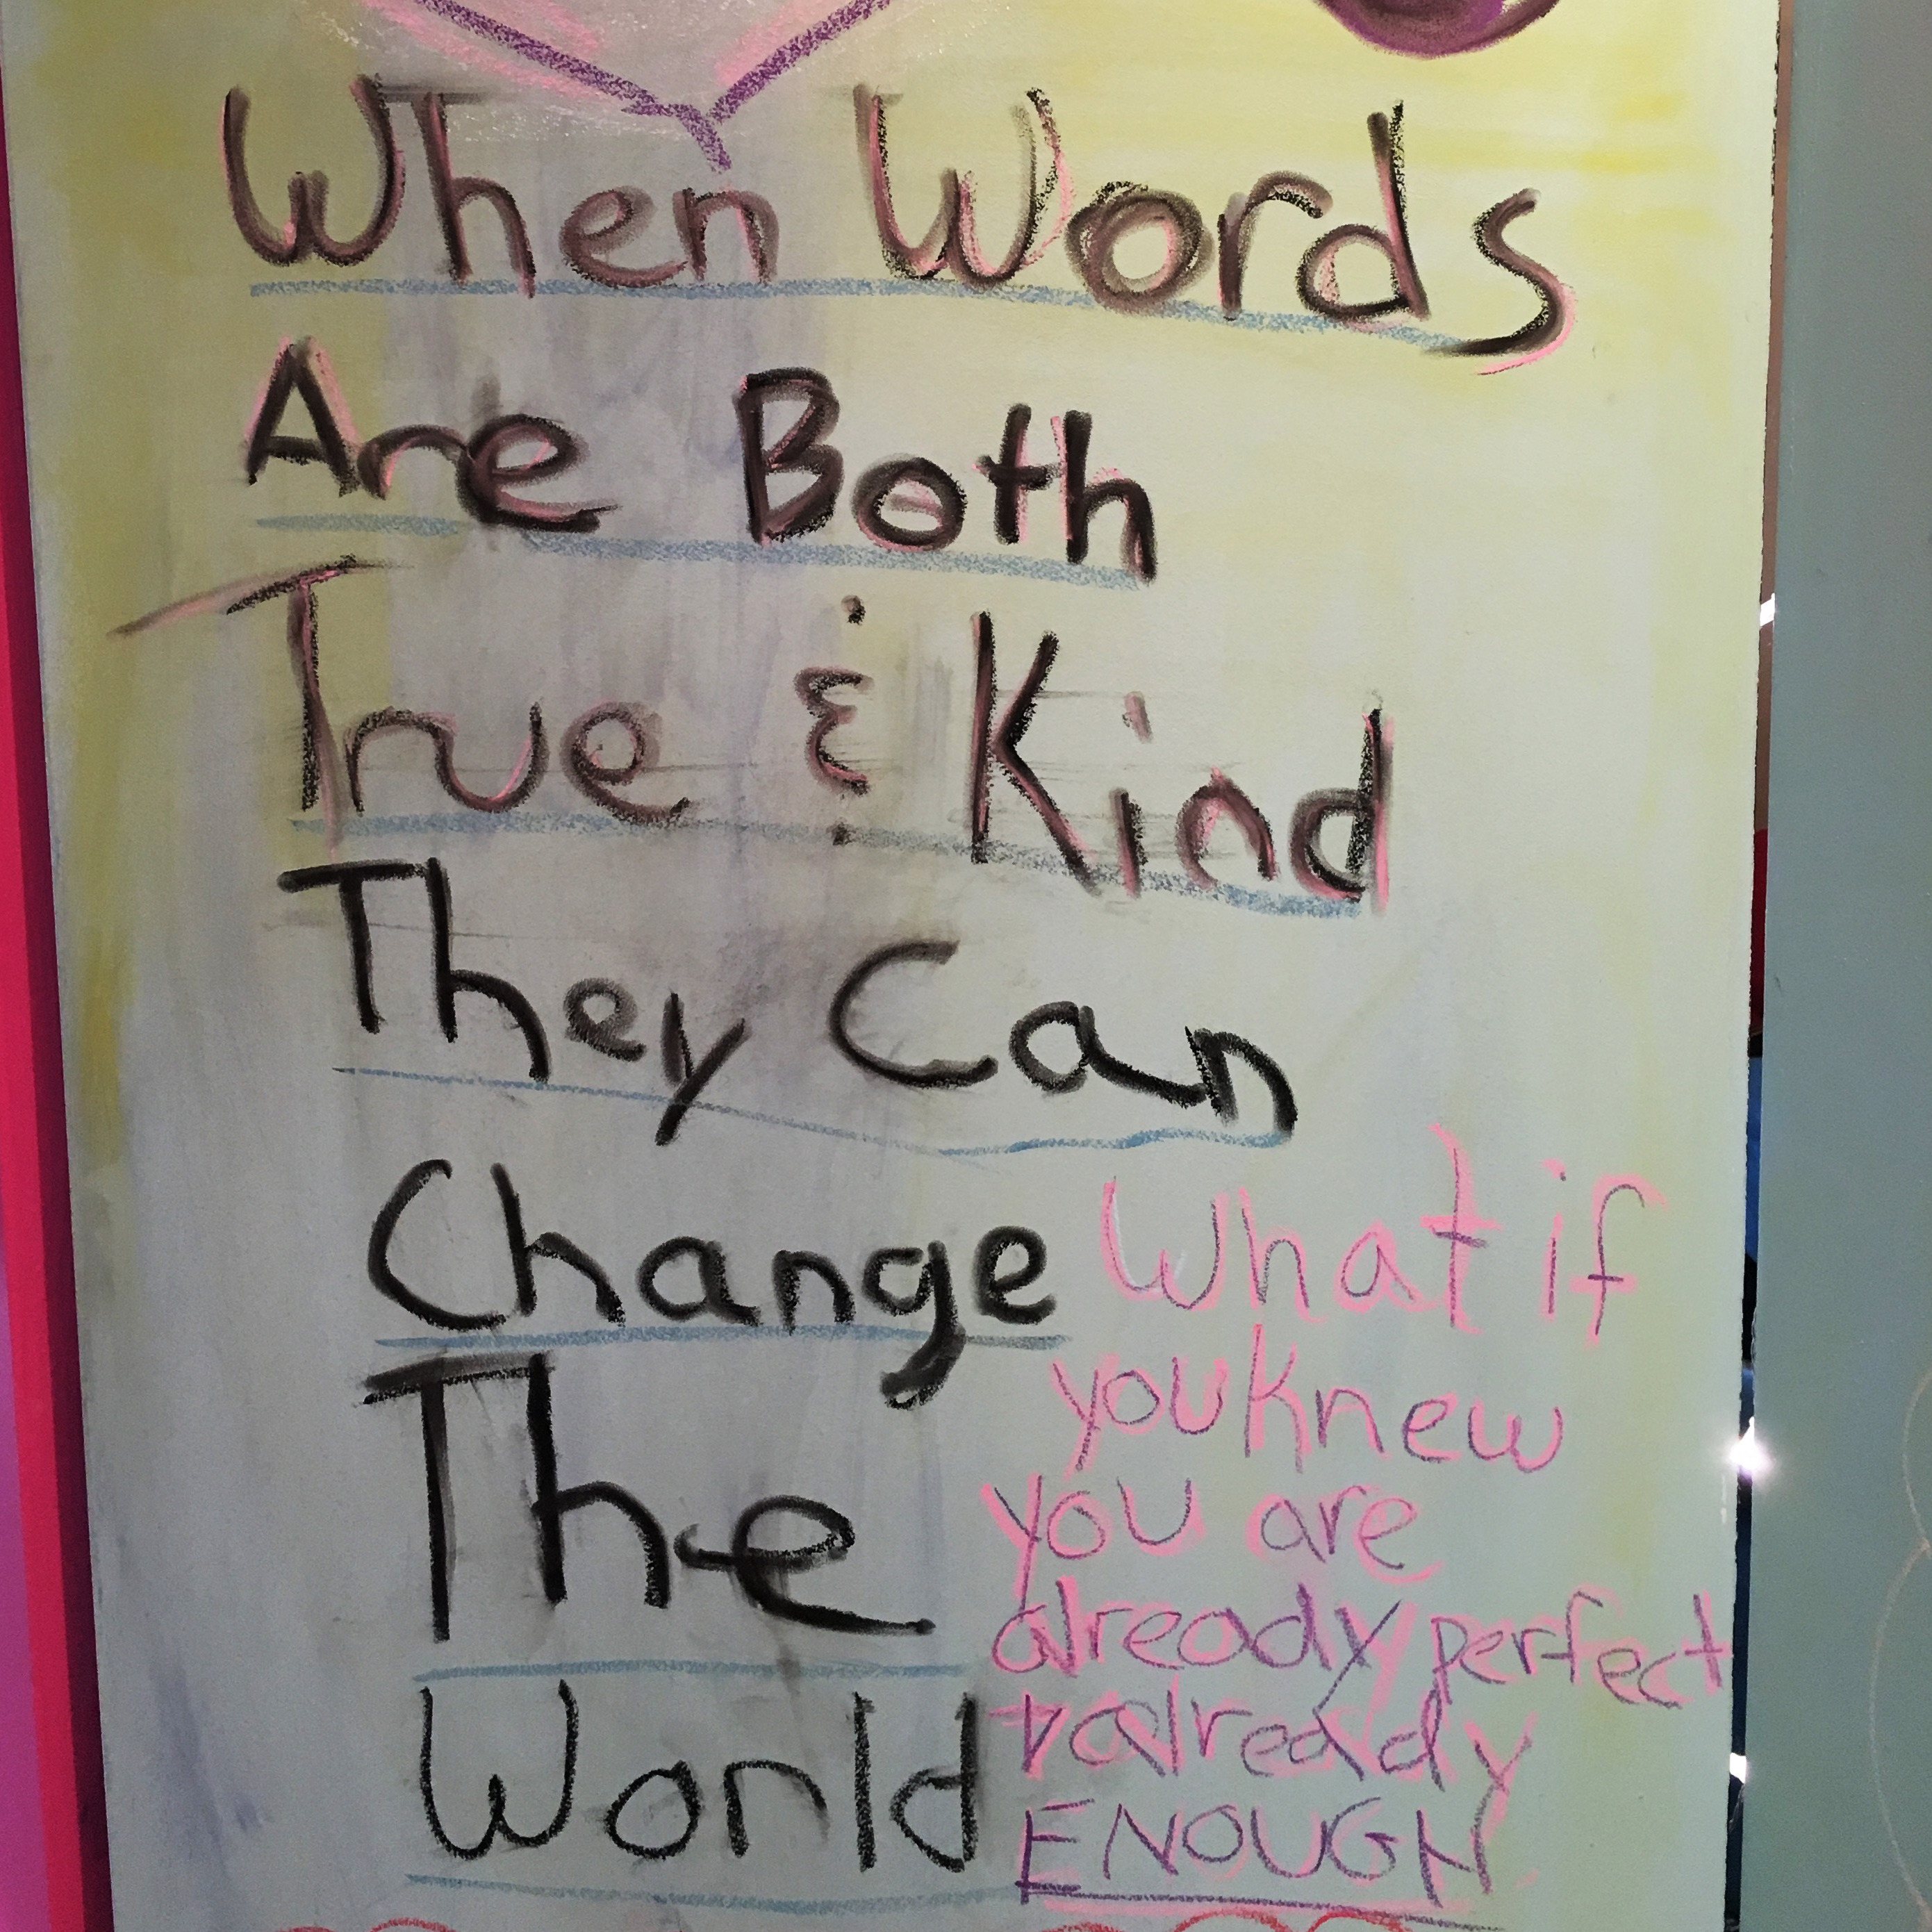 When Words
Are Both
True & Kind
They Can
Change
The
World
What if
you knew
you are
already perfect
+ already
ENOUGH.